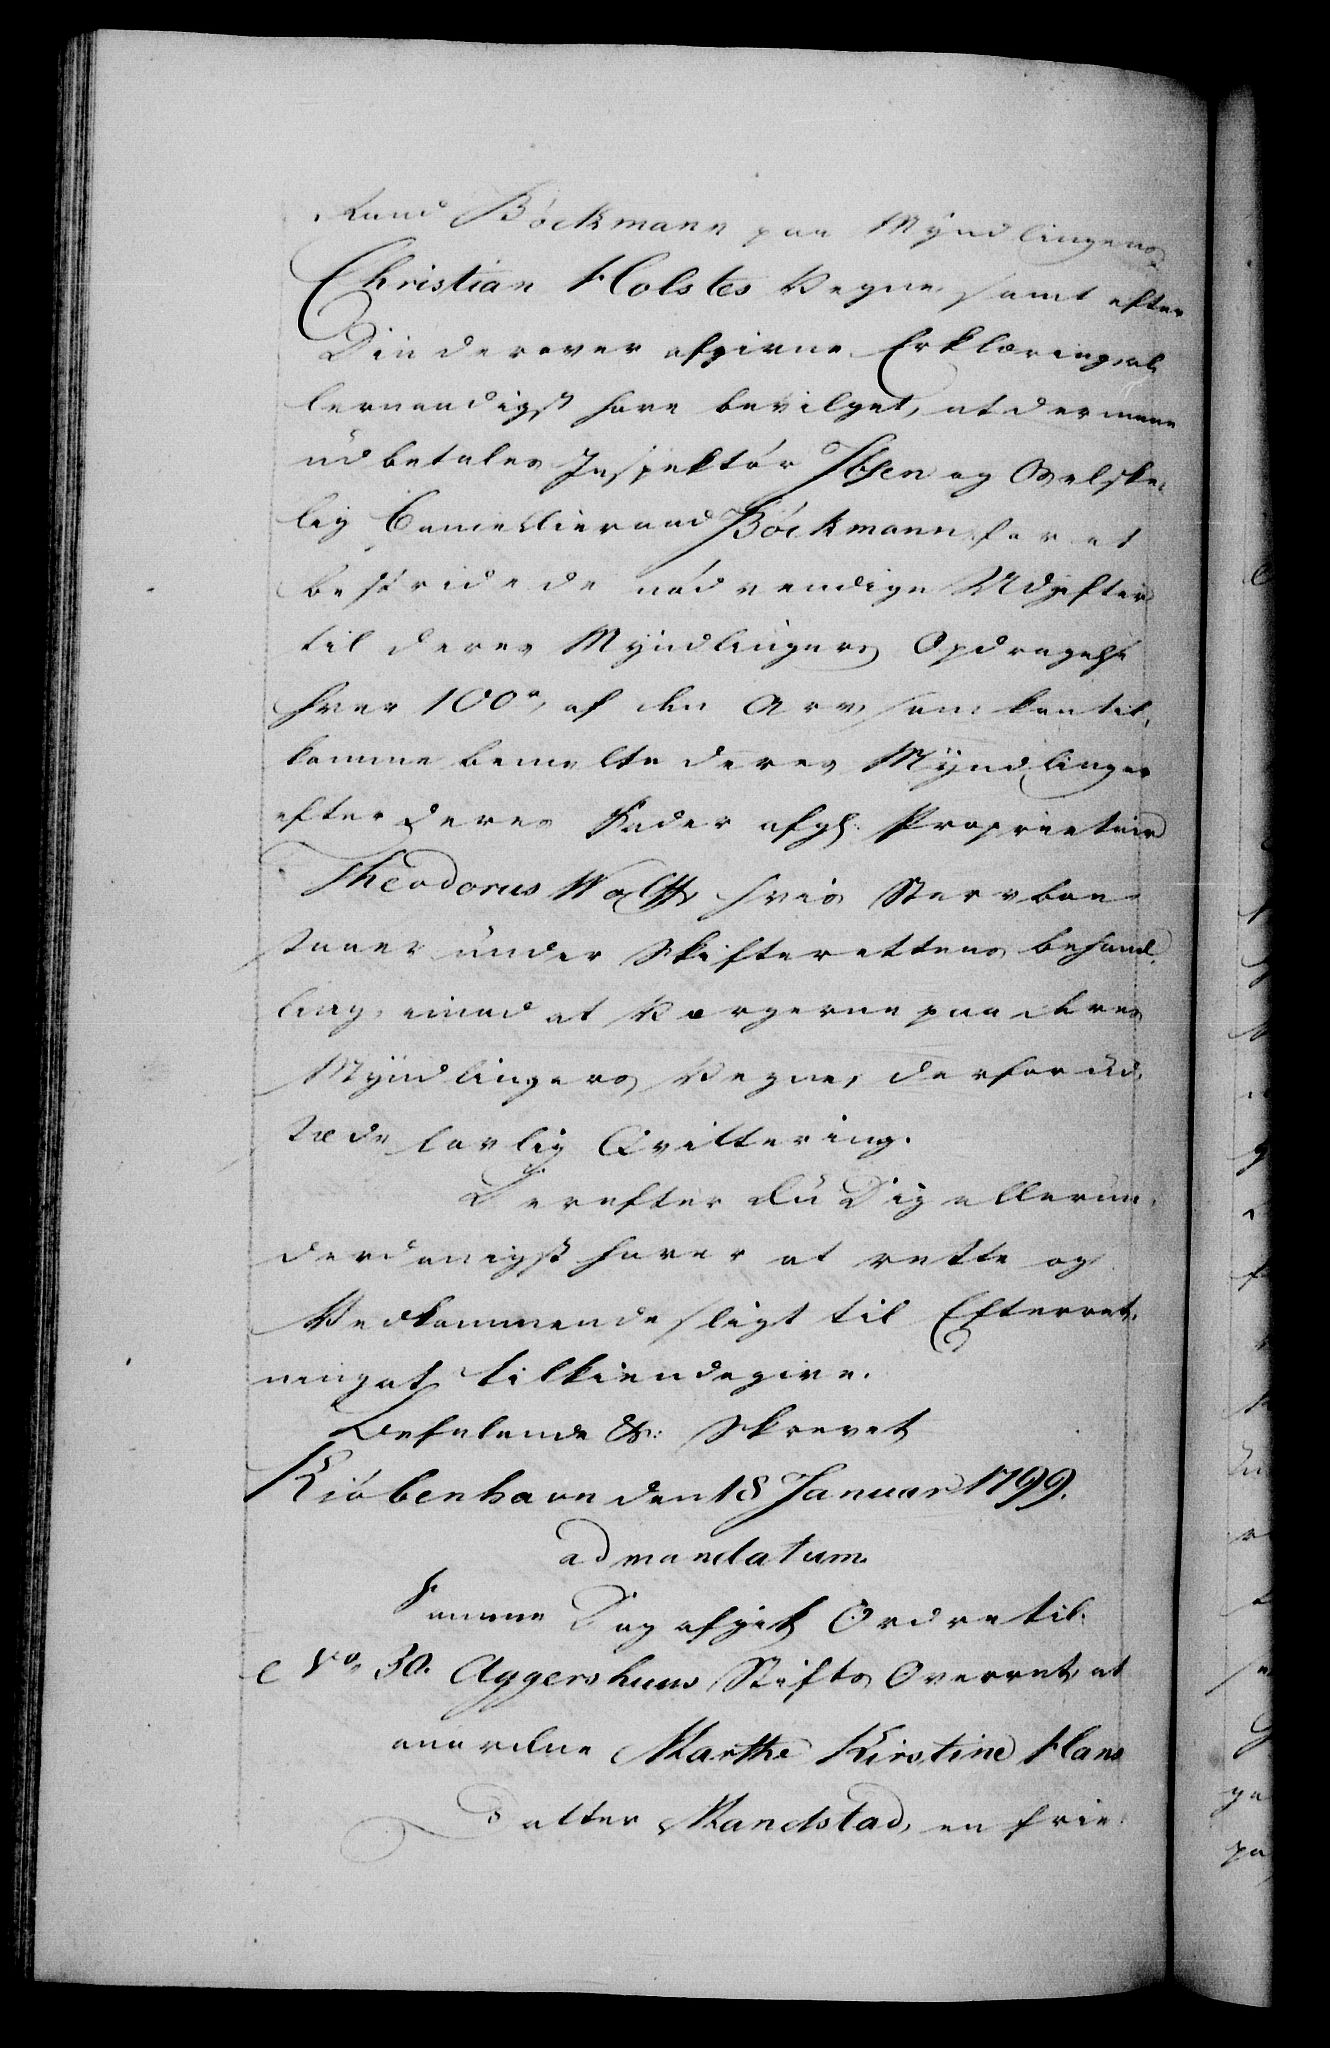 Raad Böckmann paa Myndlingens
Christian Holstes Vegne, samt efter
Din derover afgivne Erklæring, al-
lernaadigst have bevilget, at der maae
udbetales Inspektör Ibsen og Velske-
lig Cancellieraad Böckmann for at
bestride de nödvendige Udgifter
til deres Myndlingers Opdragelse
hver 100 rd, af den Arv, som kan til-
komme bemelte deres Myndlinger
efter deres Fader afg: Proprietair
Theodorus Wolff, hvis Stervboe
staaer under Skifterettens behand-
ling, imod at Værgerne paa deres
Myndlingers Vegne, derfor ud-
stæde lovlig Qvittering.
Derefter du Dig allerun-
derdanigst haver at rette og
Vedkommende sligt til Efterret-
ning at tilkiendegive.
Befalende &: Skrevet
Kiöbenhavn den 18 Januar 1799.
ad mandatum.
Samme Dag afgik Ordre til
No 30. Aggershuus Stifts Overret, at
anordne Marthe Kirstine Hans
Datter Mandstad, en frie